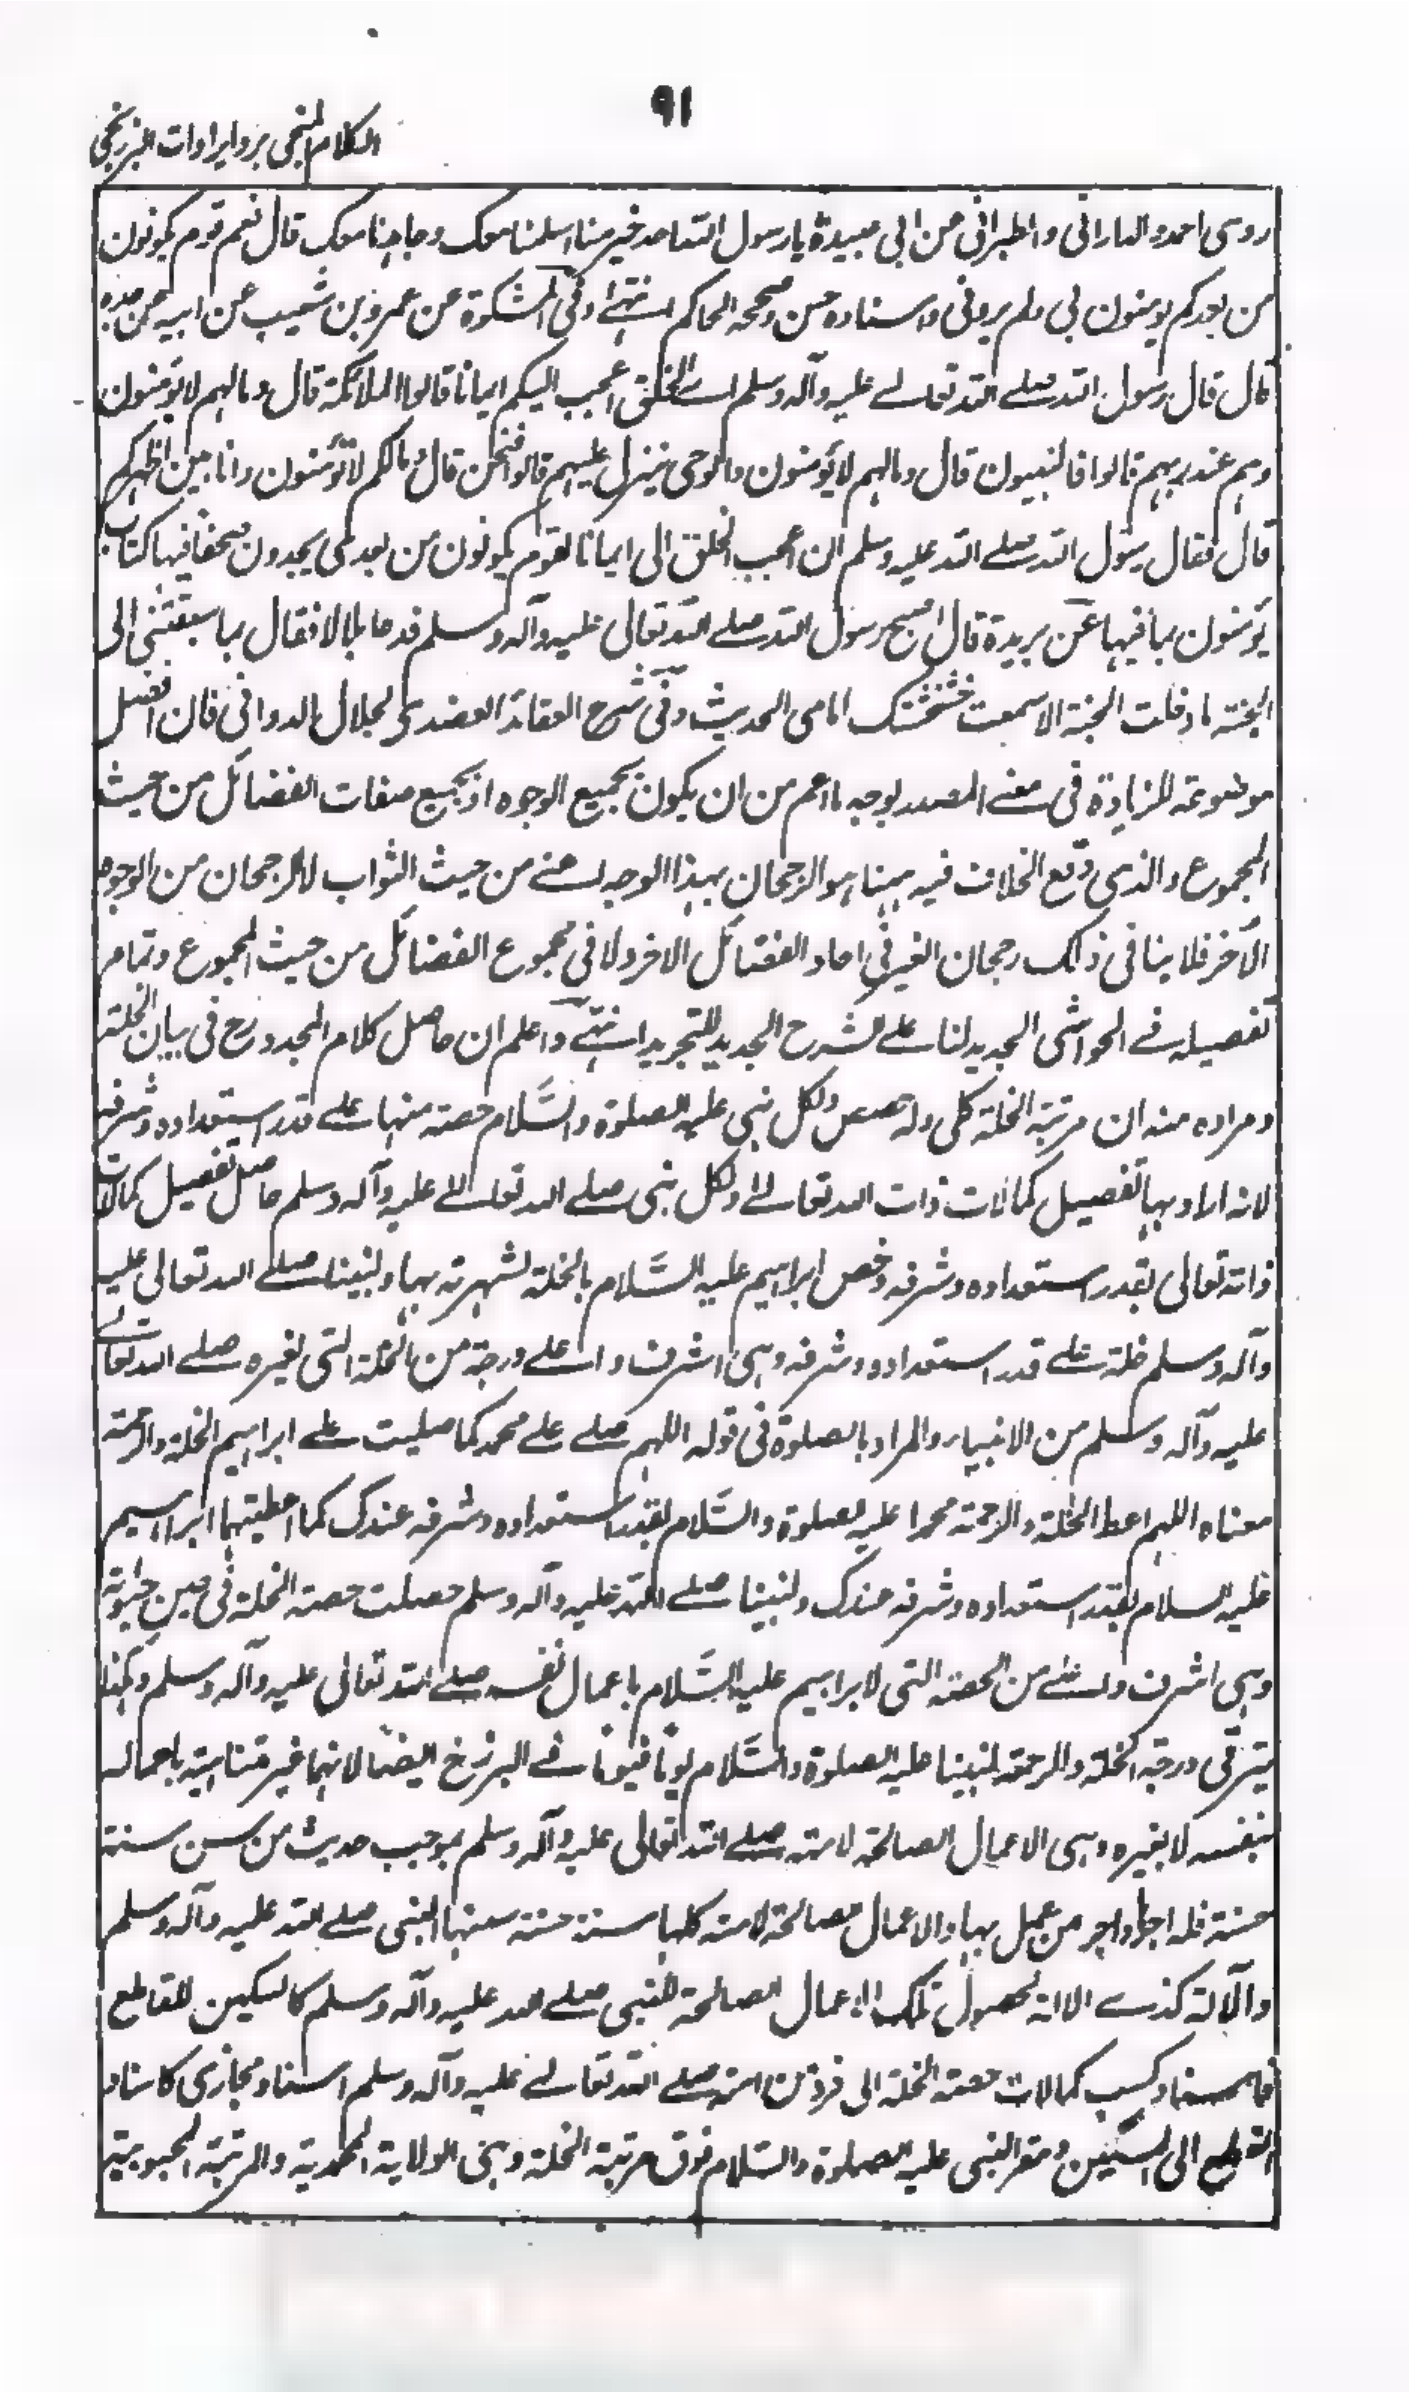 ٩١
الكلام المنجى برد ايرادات البرزنجى
روى احمد والدارانى والطبرانى من ابى عبيدة يا رسول الله احد خير منا اسلمنا معك وجاهدنا معك قال نعم قوم يكونون
من بعدكم يومنون بى ولم يرونى واسناده حسن وصححه الحاكم انتهى وفى المشكوة عن عمرو بن شعيب عن ابيه عن جده
قال قال رسول الله صلے الله تعالے عليه وآله وسلم اے الخلق اعجب اليكم ايمانا قالوا الملائكة قال ومالهم لا يؤمنون
وهم عند ربهم قالوا فالنبيون قال ومالهم لا يؤمنون والوحى ينزل عليهم قالوا فنحن قال ومالكم لا تؤمنون وانا بين اظهركم
قال فقال رسول الله صلے الله عليه وسلم ان اعجب الخلق الى ايمانا لقوم يكونون من بعدى يجدون صحفا فيها كتاب
يؤمنون بما فيها عن بريدة قال اصبح رسول الله صلے الله تعالى عليه وآله وسلم فدعا بلالا فقال بما سبقتنى الى
الجنة ما دخلت الجنة الا سمعت خشخشتك امامى الحديث وفى شرح العقائد العضدى لجلال الدوانى فان افضل
موضوعة للزيادة فى معنے المصدر بوجه ما اعم من ان يكون بجميع الوجوه او بجميع صفات الفضائل من حيث
المجموع والذى وقع الخلاف فيه ههنا هو الرجحان بهذا الوجه اعنے من حيث الثواب لا الرجحان من الوجوه
الآخر فلا ينافى ذلك رجحان الغير فى احاد الفضائل الاخر ولا فى مجموع الفضائل من حيث المجموع وتمام
تفصيله فے الحواشى الجديد لنا علے الشرح الجديد للتجريد انتهے واعلم ان حاصل كلام المجدد رح فى بيان الخلة
ومراده منه ان مرتبة الخلة كلى وله حصص ولكل نبى عليه الصلوة والسَّلام حصة منها علے قدر استعداده وشرفه
لانه اراد بها تفصيل كمالات ذات الله تعالے ولكل نبى صلے الله تعالے عليه وآله وسلم حاصل تفصيل كمالات
ذاته تعالى بقدر استعداده وشرفه وخص ابراهيم عليه السَّلام بالخلة لشهرته بها ولنبينا صلے الله تعالى عليه
وآله وسلم خلة علے قدر استعداده وشرفه وهى اشرف واعلے درجة من الخلة التى لغيره صلے الله تعالے
عليه وآله وسلم من الانبياء والمراد بالصلوة فى قوله اللهم صلے علے محمد كما صليت علے ابراهيم الخلة والرحمة
معناه اللهم اعط الخلة والرحمة محمدا عليه الصلوة والسَّلام بقدر استعداده وشرفه عندك كما اعطيتهما ابراهيم
عليه السلام بقدر استعداده وشرفه عندك ولنبينا صلے الله عليه وآله وسلم حصلت حصة الخلة فى حين حيوته
وهى اشرف واعلے من الحصة التى لابراهيم عليه السَّلام باعمال نفسه صلے الله تعالى عليه وآله وسلم وكهذا
يترقى درجة الخلة والرحمة لنبينا عليه الصلوة والسَّلام يوما فيوما فے البرزخ ايضا لانهما غير متناهية باعماله
بنفسه لا بغيره وهى الاعمال الصالحة لامته صلے الله تعالى عليه وآله وسلم بموجب حديث من سن سنة
حسنة فله اجرها واجر من عمل بها والاعمال الصالحة لامته كلها سنة حسنة سنها النبى صلے الله عليه وآله وسلم
والآلة كذے الالة لحصول تلك الاعمال الصالحة للنبى صلے الله عليه وآله وسلم كالسكين للقاطع
فاسناد كسب كمالات حصة الخلة الى فرد من امته صلے الله تعالے عليه وآله وسلم اسناد مجازى كاسناد
القطع الى السكين ومقر النبى عليه الصلوة والسّلام فوق مرتبة الخلة وهى الولاية المحمدية والمرتبة المحبوبية